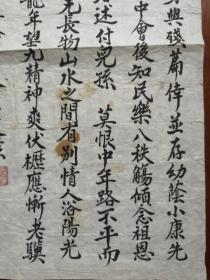 身與殘篇倖並存幼蔭小康先
中會後知民樂八秩觴傾念祖恩
述付兒孫 莫恨中年路不平而
无長物山水之間有別情入浴陽光
龍年望九精神爽伏櫪應慚老驥